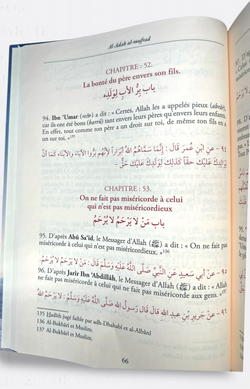 Al-Adab al-moufrad
CHAPITRE : 52.
La bonté du père envers son fils.
باب بِرُّ الأَبِ لِوَلَدِهِ
94. Ibn 'Umar (عنه) a dit : « Certes, Allah les a appelés pieux (abrâr),
car ils ont été bons (barrû) tant envers leurs pères qu'envers leurs enfants.
En effet, tout comme ton père a un droit sur toi, de même ton fils en a
un sur toi. »
٩٤ - عَنِ ابْنِ عُمَرَ قَالَ : إِنَّمَا سَمَّاهُمُ اللَّهُ أَبْرَارًا لِأَنَّهُمْ بَرُّوا الْآبَاءَ وَالْأَبْنَاءَ، كَمَا أَنَّ
لِوَالِدِكَ عَلَيْكَ حَقًّا كَذَلِكَ لِوَلَدِكَ عَلَيْكَ حَقٌّ .
CHAPITRE : 53.
On ne fait pas miséricorde à celui
qui n'est pas miséricordieux
باب مَنْ لَا يَرْحَمُ لَا يُرْحَمُ
95. D'après Abû Sa'îd, le Messager d'Allah (ﷺ) a dit : « On ne fait pas
miséricorde à celui qui n'est pas miséricordieux. »
٩٥ - عَنْ أَبِي سَعِيدٍ عَنِ النَّبِيِّ صَلَّى اللَّهُ عَلَيْهِ وَسَلَّمَ قَالَ : مَنْ لَا يَرْحَمُ لَا يُرْحَمُ
96. D'après Jarîr Ibn 'Abdillâh, le Messager d'Allah (ﷺ) a dit : « Allah ne
fait pas miséricorde à celui qui ne fait pas miséricorde aux gens. »
٩٦ - عَنْ جَرِيرِ بْنِ عَبْدِ اللَّهِ قَالَ قَالَ رَسُولُ اللَّهِ صَلَّى اللَّهُ عَلَيْهِ وَسَلَّمَ :
135 Hadith jugé faible par adh-Dhahabî et al-Albânî
136 Al-Bukhârî et Muslim.
137 Al-Bukhârî et Muslim.
66